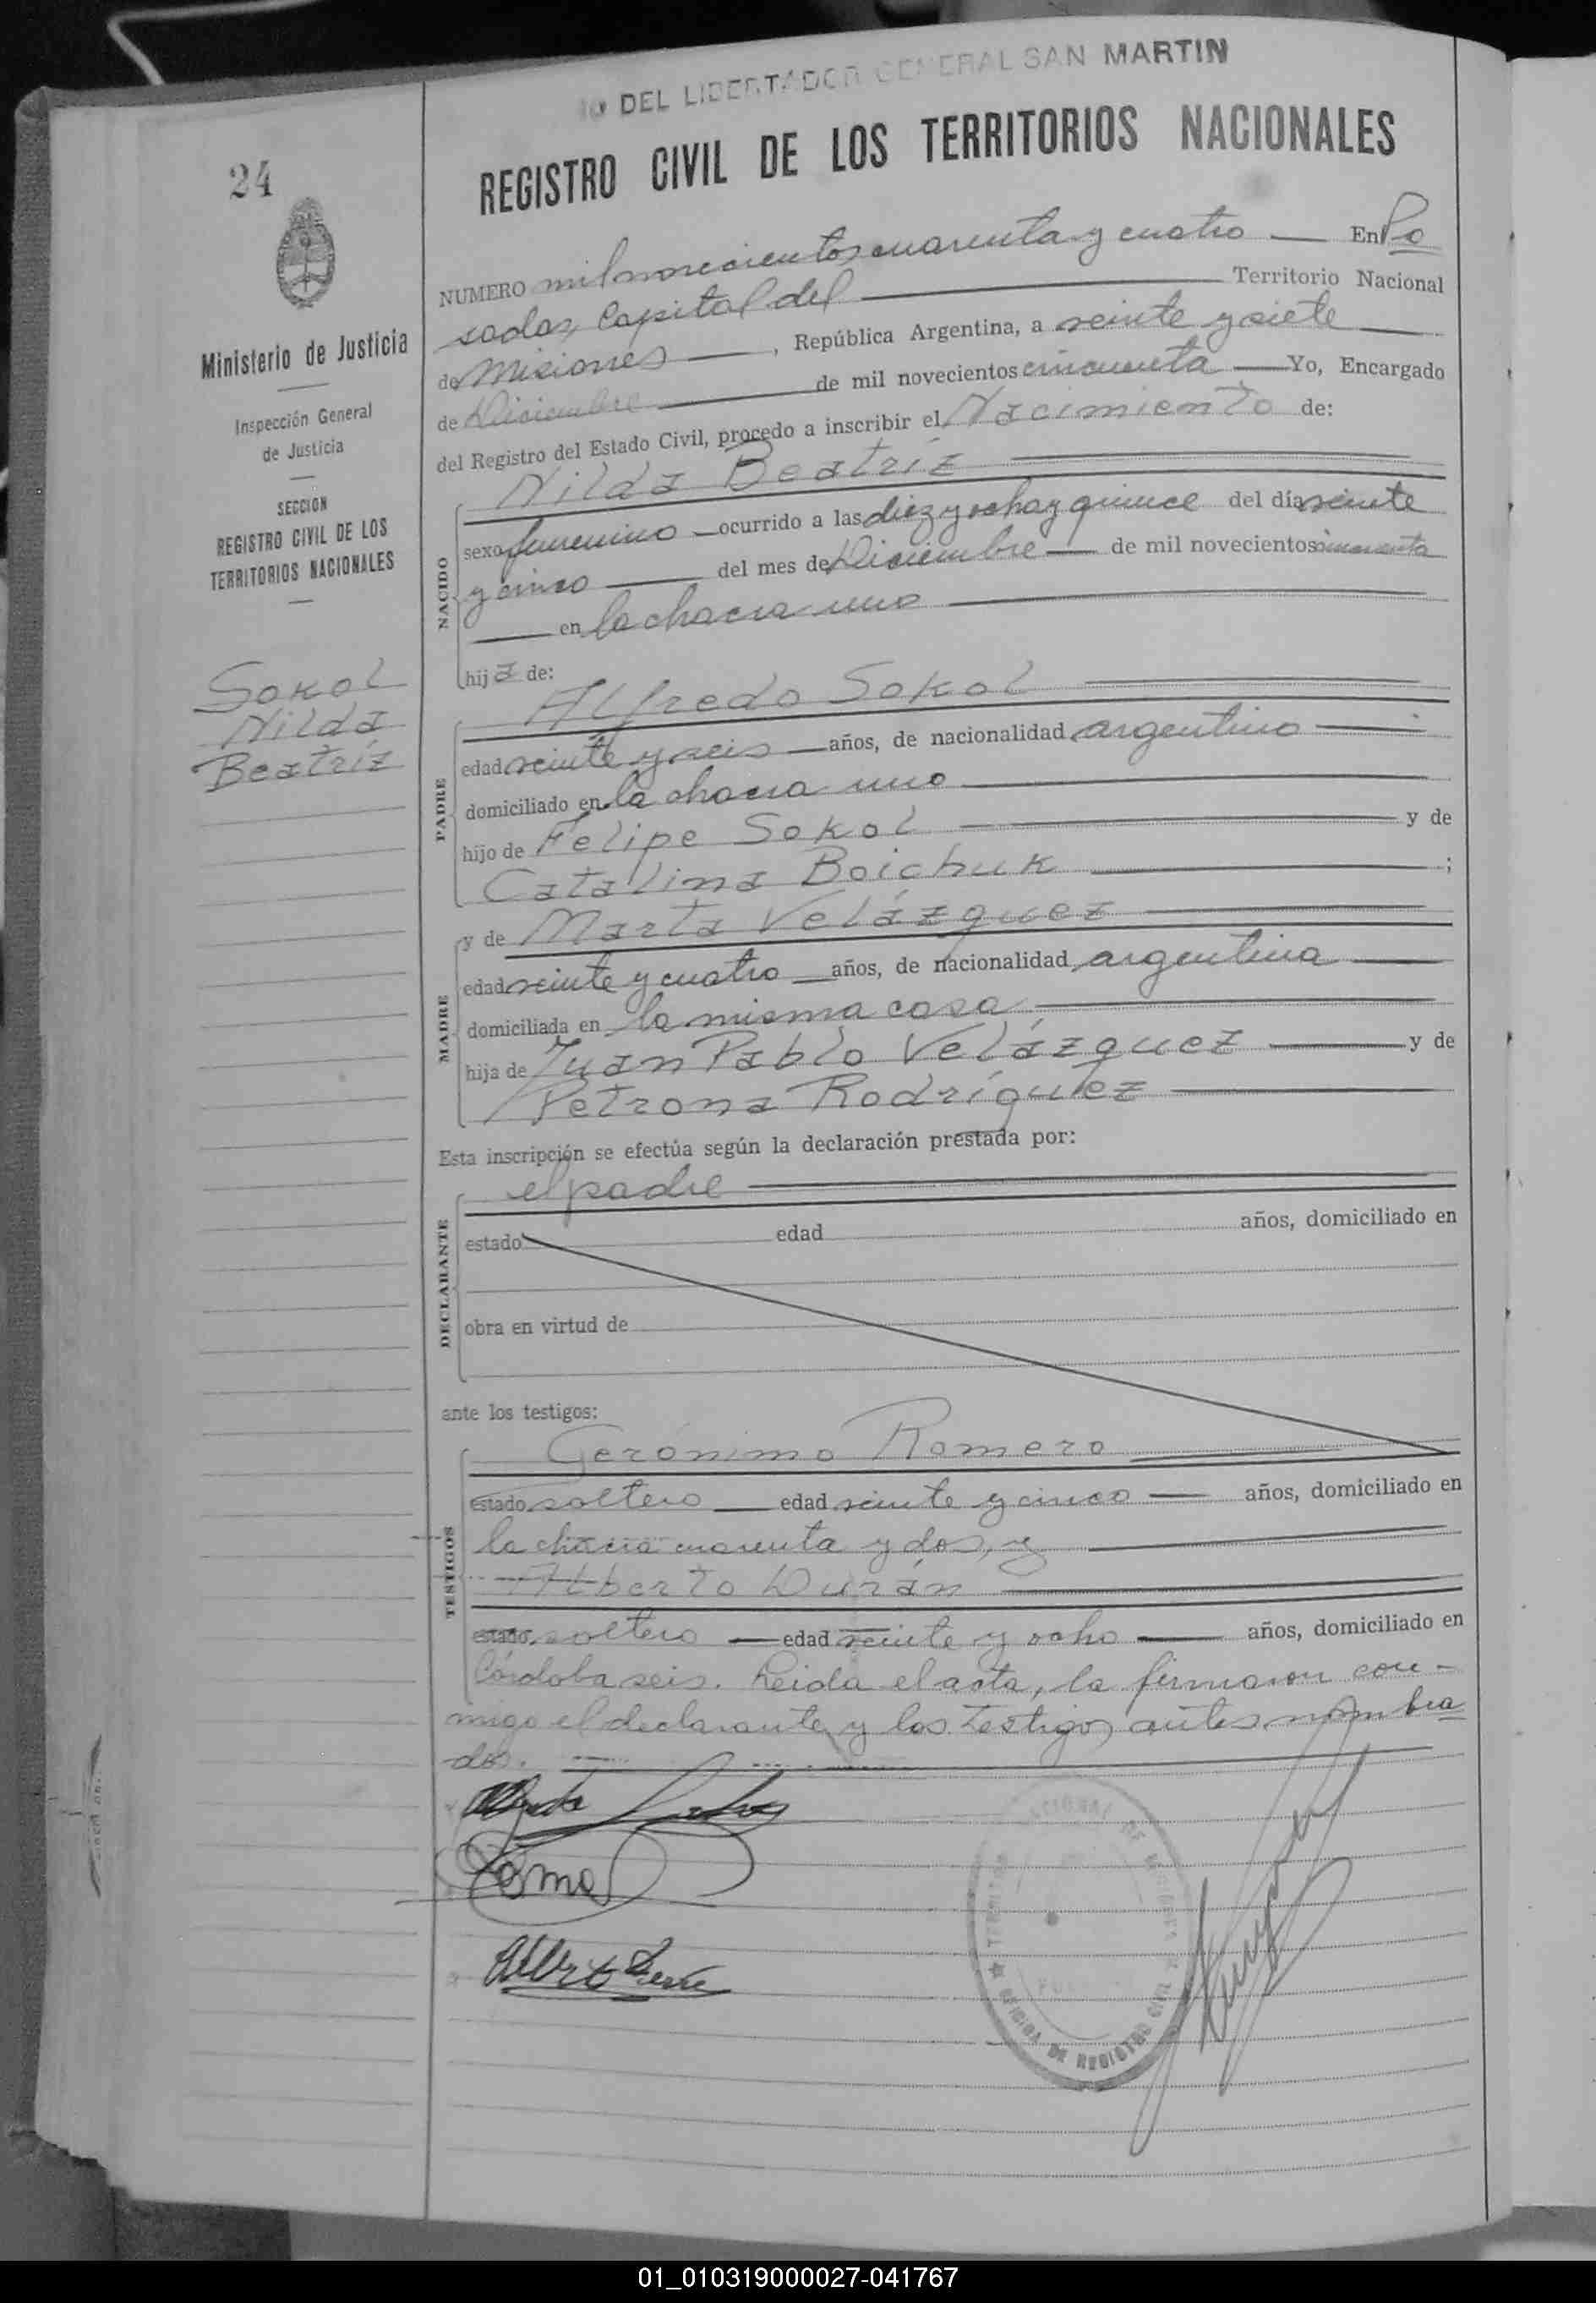 DEL LIBERTADOR GENERAL SAN MARTIN
REGISTRO CIVIL DE LOS TERRITORIOS NACIONALES
24
Ministerio de Justicia
Inspección General
de Justicia
SECCION
REGISTRO CIVIL DE LOS
TERRITORIOS NACIONALES
Sokol
Nilda
Beatríz
NUMERO mil novecientos cuarenta y cuatro En Po
sadas, Capital del Territorio Nacional
de Misiones, República Argentina, a veinte y siete
de Diciembre de mil novecientos cincuenta Yo, Encargado
del Registro del Estado Civil, procedo a inscribir el Nacimiento de:
Nilda Beatríz
NACIDO
sexo femenino ocurrido a las diez y ocho y quince del día veinte
y cinco del mes de Diciembre de mil novecientos cincuenta
en la chacra uno
hija de:
Alfredo Sokol
PADRE
edad veinte y seis años, de nacionalidad argentino
domiciliado en la chacra uno
hijo de Felipe Sokol y de
Catalina Boichuk ;
MADRE
y de Marta Velázquez
edad veinte y cuatro años, de nacionalidad argentina
domiciliada en la misma casa
hija de Juan Pablo Velázquez y de
Petrona Rodríguez
Esta inscripción se efectúa según la declaración prestada por:
el padre
DECLARANTE
estado edad años, domiciliado en
obra en virtud de
ante los testigos:
Gerónimo Romero
TESTIGOS
estado soltero edad veinte y cinco años, domiciliado en
la chacra cuarenta y dos, y
Alberto Durán
estado soltero edad veinte y ocho años, domiciliado en
Córdoba seis. Leida el acta, la firmaron con-
migo el declarante y los testigos antes nombra
dos.
OFICINA DE REGISTRO CIVIL
01_010319000027-041767